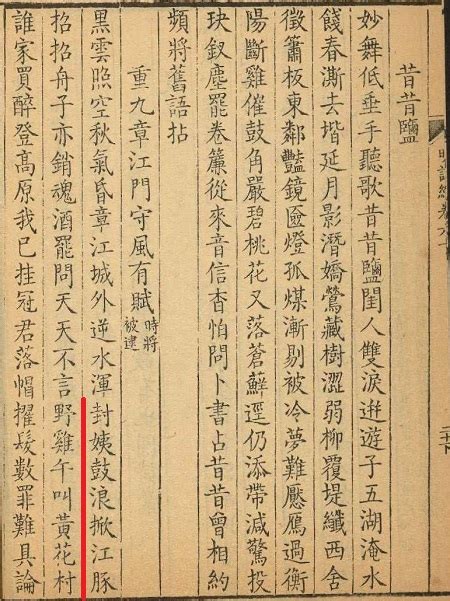 昔昔鹽
妙舞低垂手聽歌昔昔鹽閨人雙淚逬遊子五湖淹水
餞春澌去堦延月影潛嬌鶯藏樹澀弱柳覆堤纖西舍
徵簫板東鄰豔鏡奩燈孤煤漸剔被冷夢難壓鴈過衡
陽斷雞催鼓角嚴碧桃花又落蒼蘚逕仍添帶減驚投
玦釵塵罷卷簾從來音信杳怕問卜書占昔昔曾相約
頻將舊語拈
重九章江門守風有賦時將被逮
黑雲照空秋氣昏章江城外逆水渾封姨鼓浪掀江豚
招招舟子亦銷魂酒罷問天天不言野雞午叫黃花村
誰家買醉登高原我已挂冠君落帽擢髮數罪難具論